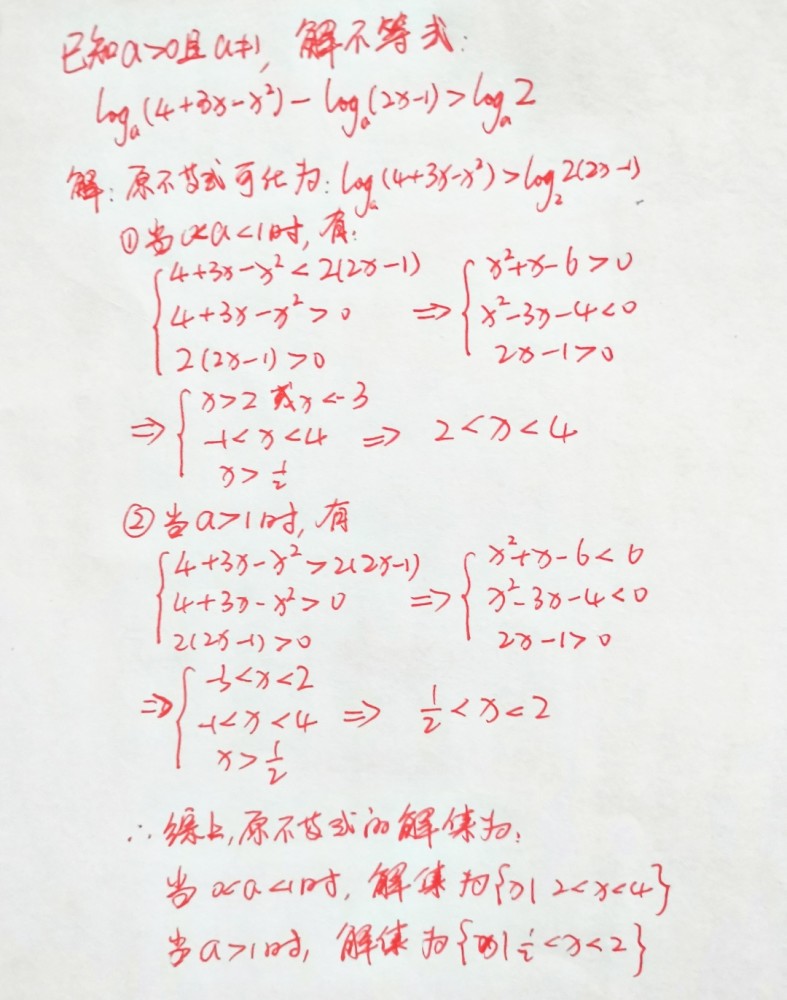 已知a>0且a≠1, 解不等式:
logₐ(4+3x-x²)-logₐ(2x-1)>logₐ2
解: 原不等式可化为: logₐ(4+3x-x²)>log₂2(2x-1)
①当0<a<1时, 有:
{4+3x-x²<2(2x-1) ⇒ {x²+x-6>0
4+3x-x²>0 x²-3x-4<0
2(2x-1)>0 2x-1>0
⇒ {x>2 或x<-3
-1<x<4 ⇒ 2<x<4
x>1/2
②当a>1时, 有
{4+3x-x²>2(2x-1) ⇒ {x²+x-6<0
4+3x-x²>0 x²-3x-4<0
2(2x-1)>0 2x-1>0
⇒ {-3<x<2
-1<x<4 ⇒ 1/2<x<2
x>1/2
∴综上, 原不等式的解集为:
当0<a<1时, 解集为{x|2<x<4}
当a>1时, 解集为{x|1/2<x<2}